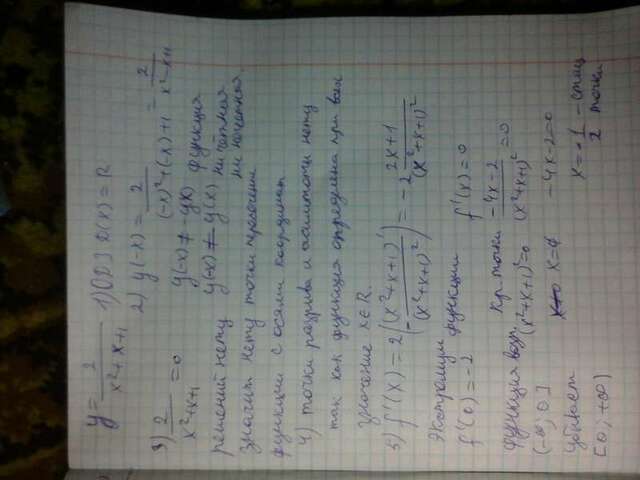 y = 2/(x²+x+1) 1) D(x) = R
2) y(-x) = 2/((-x)²+(-x)+1) = 2/(x²-x+1)
3) 2/(x²+x+1) = 0
y(-x) ≠ -y(x) функция
y(-x) ≠ y(x) ни чётная
ни нечётная.
решений нету
значит нету точки пресечения
функции с осями координат
4) точки разрыва и асимптоты нету
так как функция определена при всех
значение x ∈ R.
5) f'(x) = 2(-(x²+x+1)'/(x²+x+1)²) = -2 (2x+1)/(x²+x+1)²
Экстремум функции f'(x) = 0
f'(0) = -2
кр. точки (-4x-2)/(x²+x+1)² = 0
функция возр. (x²+x+1)²=0
(-∞; 0] x≠ -4x-2=0
убывает x=-1/2 - стац
[0; +∞) точки